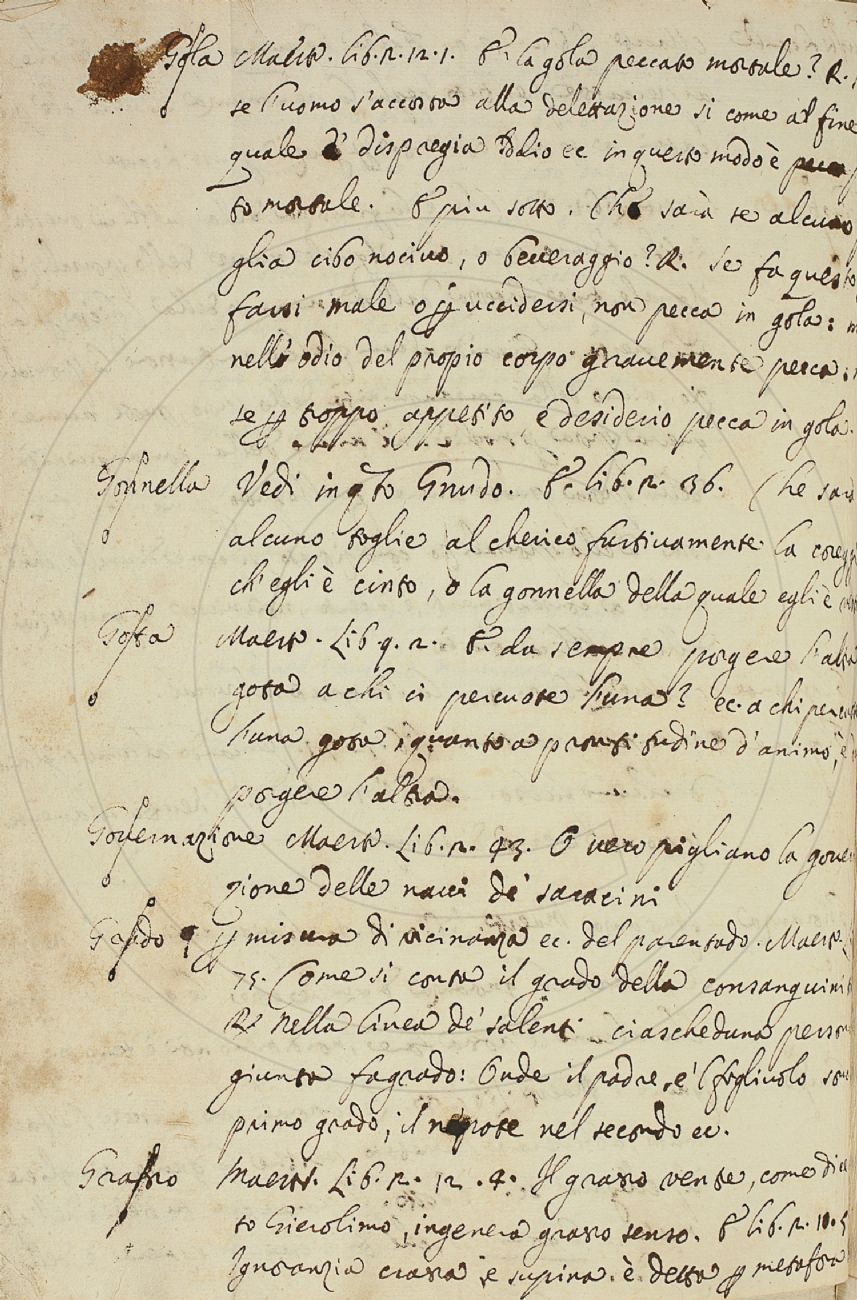 Gola Maest. lib. 2. 12. 1. E la gola peccato mortale? R.
se l'uomo s'accosta alla delettazione si come al fine
quale è dispregia Iddio ec in questo modo è pecca
to mortale. E piu sotto. Che sarà se alcuno
glia cibo nocivo, o beveraggio? R. Se fa questo
farsi male o p uccidersi, non pecca in gola: m
nell'odio del propio corpo gravemente pecca:
se p troppo appetito e desiderio pecca in gola.
Gonnella Vedi in qto Gnudo. E lib. 2. 36. Che sarà
alcuno toglie al cherico furtivamente la coreggi
ch'egli è cinto, o la gonnella della quale egli è
Gota Maest. Lib. 9. 2. E da sempre porgere l'altra
gota a chi ci percuote l'una? ec. a chi percuote
l'una gota, quanto a prontitudine d'animo, è
porgere l'altra.
Governazione Maest. Lib. 2. 43. O vero pigliano la gover
gione delle navi de' saracini
Grado p misura di vicinanza ec. del parentado. Maest.
75. Come si conta il grado della consanguinit
R Nella linea de' salenti ciascheduna person
giunta fa grado: Onde il padre, e'l figliuolo son
primo grado; il nepote nel secondo ec.
Grasso Maest. Lib. 2. 12. 4. Il grasso ventre, come dic
to Gierolimo, ingenera grasso senso. E lib. 2. 10. 5
Ignoranzia crassa, e supina è detta p metafora